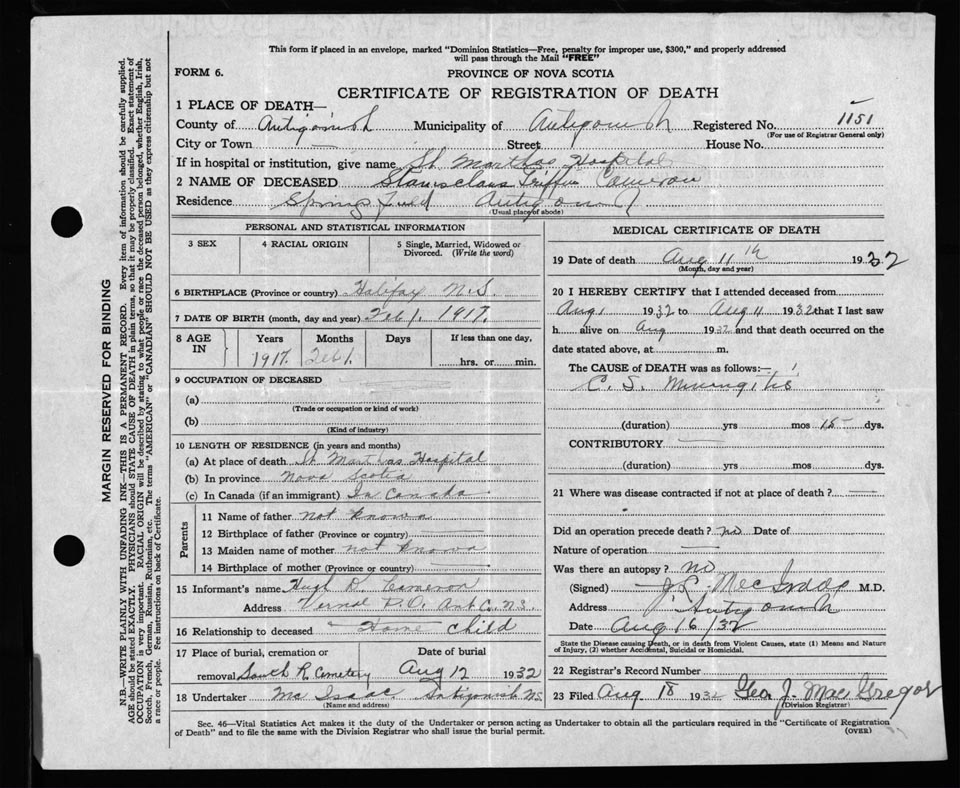 This form if placed in an envelope, marked "Dominion Statistics—Free, penalty for improper use, $300," and properly addressed
will pass through the Mail "FREE"
FORM 6.
PROVINCE OF NOVA SCOTIA
CERTIFICATE OF REGISTRATION OF DEATH
1 PLACE OF DEATH—
County of Antigonish Municipality of Antigonish Registered No. 1151
(For use of Registrar General only)
City or Town — Street House No.
If in hospital or institution, give name St Marthas Hospital
2 NAME OF DECEASED Stanisclaus Griffin Cameron
Residence Springfield Antigonish
(Usual place of abode)
PERSONAL AND STATISTICAL INFORMATION
3 SEX 4 RACIAL ORIGIN 5 Single, Married, Widowed or Divorced. (Write the word)
6 BIRTHPLACE (Province or country) Halifax N.S.
7 DATE OF BIRTH (month, day and year) Feb 1. 1917.
8 AGE IN Years Months Days If less than one day,
1917. Feb 1. hrs. or min.
9 OCCUPATION OF DECEASED
(a)
(Trade or occupation or kind of work)
(b)
(Kind of industry)
10 LENGTH OF RESIDENCE (in years and months)
(a) At place of death St Marthas Hospital
(b) In province Nova Scotia
(c) In Canada (if an immigrant) In Canada
Parents
11 Name of father not known
12 Birthplace of father (Province or country) —
13 Maiden name of mother not known
14 Birthplace of mother (Province or country) —
15 Informant's name Hugh D. Cameron
Address Vernal P.O. Ant Co. N.S.
16 Relationship to deceased Home child
17 Place of burial, cremation or Date of burial
removal South R Cemetery Aug 12 1932
18 Undertaker Mac Isaac Antigonish N.S.
(Name and address)
MEDICAL CERTIFICATE OF DEATH
19 Date of death Aug 11th 1932
(Month, day and year)
20 I HEREBY CERTIFY that I attended deceased from
Aug 1 1932 to Aug 11 1932 that I last saw
h alive on Aug 1932 and that death occurred on the
date stated above, at m.
The CAUSE of DEATH was as follows:—
C. S. Meningitis
(duration) yrs mos 15 dys.
CONTRIBUTORY —
(duration) yrs mos dys.
21 Where was disease contracted if not at place of death? —
Did an operation precede death? no Date of
Nature of operation —
Was there an autopsy? no
(Signed) M.D.
Address Antigonish
Date Aug 16/32
State the Disease causing Death, or in death from Violent Causes, state (1) Means and Nature
of Injury, (2) whether Accidental, Suicidal or Homicidal.
22 Registrar's Record Number
23 Filed Aug 18 1932 Geo J. MacGregor
(Division Registrar)
Sec. 46—Vital Statistics Act makes it the duty of the Undertaker or person acting as Undertaker to obtain all the particulars required in the "Certificate of Registration
of Death" and to file the same with the Division Registrar who shall issue the burial permit.
(OVER)
MARGIN RESERVED FOR BINDING
N.B.—WRITE PLAINLY WITH UNFADING INK—THIS IS A PERMANENT RECORD. Every item of information should be carefully supplied.
AGE should be stated EXACTLY. PHYSICIANS should STATE CAUSE OF DEATH in plain terms, so that it may be properly classified. Exact statement of
OCCUPATION is very important. RACIAL ORIGIN will be described by stating to what people or race the deceased person belonged, whether English, Irish,
Scotch, French, German, Russian, Ruthenian, etc. The terms "AMERICAN" or "CANADIAN" SHOULD NOT BE USED as they express citizenship but not
a race or people. Fee instructions on back of Certificate.